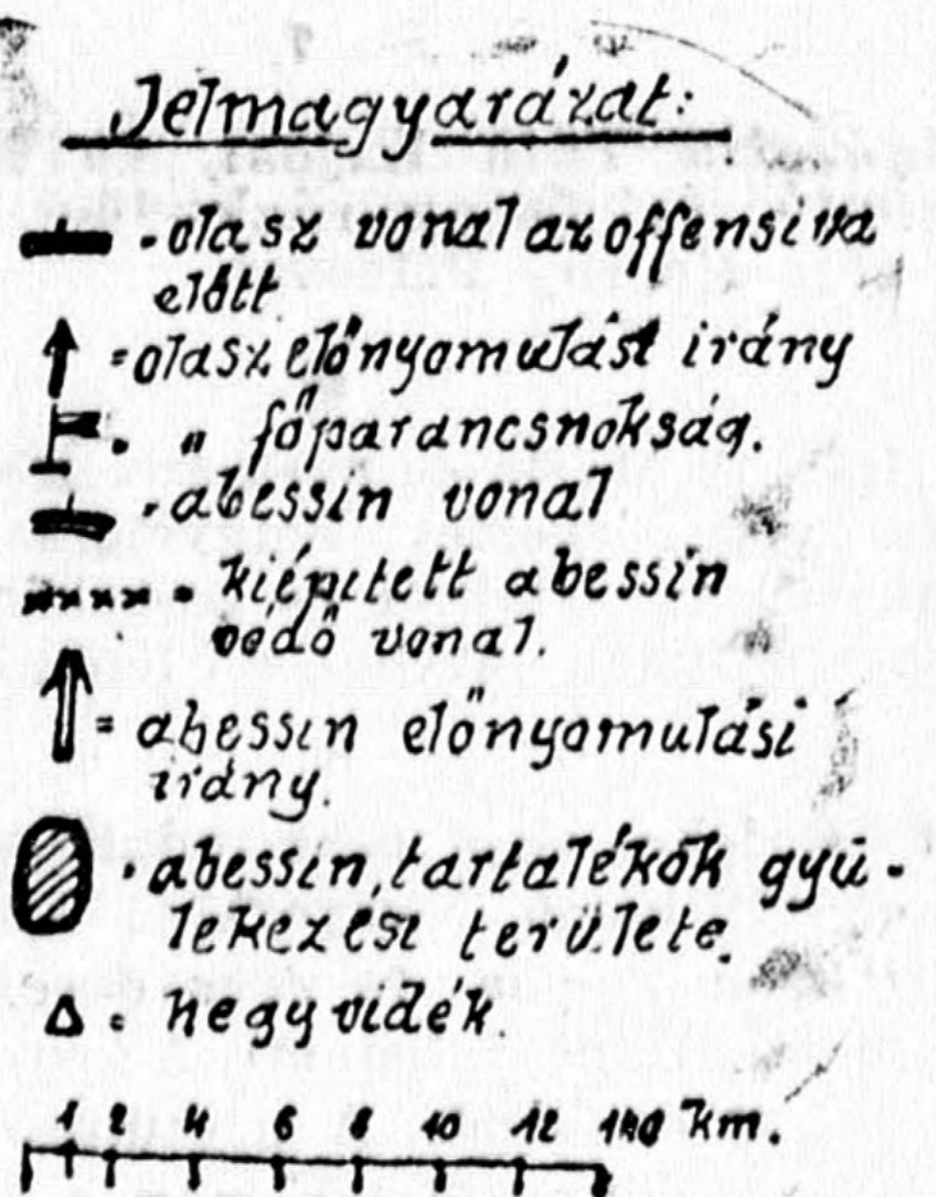 Jelmagyarázat:
- olasz vonal az offensiva
előtt
= olasz előnyomulási irány
= " főparancsnokság.
- abessin vonal
= kiépitett abessin
védő vonal.
= abessin előnyomulási
irány.
- abessin, tartalékok gyü-
lekezési területe.
Δ = hegyvidék.
1 2 4 6 8 10 12 km.